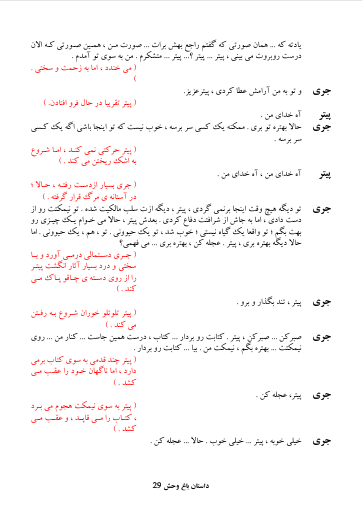 یادته که ... همان صورتی که گفتم راجع بهش برات ... صورت من ، همین صورتی که الان
درست روبروت می بینی ، پیتر ... پیتر ؟... پیتر ... متشکرم . من به سوی تو آمدم .
( می خندد ، اما به زحمت و سختی .
)
و تو به من آرامش عطا کردی ، پیترعزیز. جری
( پیتر تقریبا در حال فرو افتادن. )
پیتر آه خدای من .
جری حالا بهتره تو بری . ممکنه یک کسی سر برسه ، خوب نیست که تو اینجا باشی اگه یک کسی
سر برسه .
( پیتر حرکتی نمی کند ، اما شروع
به اشک ریختن می کند . )
پیتر آه خدای من ، آه خدای من .
( جری بسیار ازدست رفته ، حالا ؛
در آستانه ی مرگ قرار گرفته . )
جری تو دیگه هیچ وقت اینجا برنمی گردی ، پیتر ، دیگه ازت سلب مالکیت شده . تو نیمکتت رو از
دست دادی ، اما به جاش از شرافتت دفاع کردی . بعدش پیتر ، حالا می خوام یک چیزی رو
بهت بگم ؛ تو واقعا یک گیاه نیستی ؛ خوب شد ، تو یک حیوونی . تو ، هم ، یک حیوونی . اما
حالا دیگه بهتره بری ، پیتر . عجله کن ، بهتره بری ... می فهمی؟
( جری دستمالی درمی آورد و با
سختی و درد بسیار آثار انگشت پیتر
را از روی دسته ی چاقو پاک می
کند . )
جری پیتر ، تند بگذار و برو .
( پیتر تلوتلو خوران شروع به رفتن
می کند . )
جری صبرکن ... صبرکن ، پیتر . کتابت رو بردار ... کتاب ، درست همین جاست ... کنار من ... روی
نیمکتت ... بهتره بگم ، نیمکت من . بیا ... کتابت رو بردار .
( پیتر چند قدمی به سوی کتاب برمی
دارد ، اما ناگهان خود را عقب می
کشد . )
جری پیتر، عجله کن .
( پیتر به سوی نیمکت هجوم می برد
، کتاب را می قاپد ، و عقب می
کشد . )
جری خیلی خوبه ، پیتر ... خیلی خوب . حالا ... عجله کن .
داستان باغ وحش 29